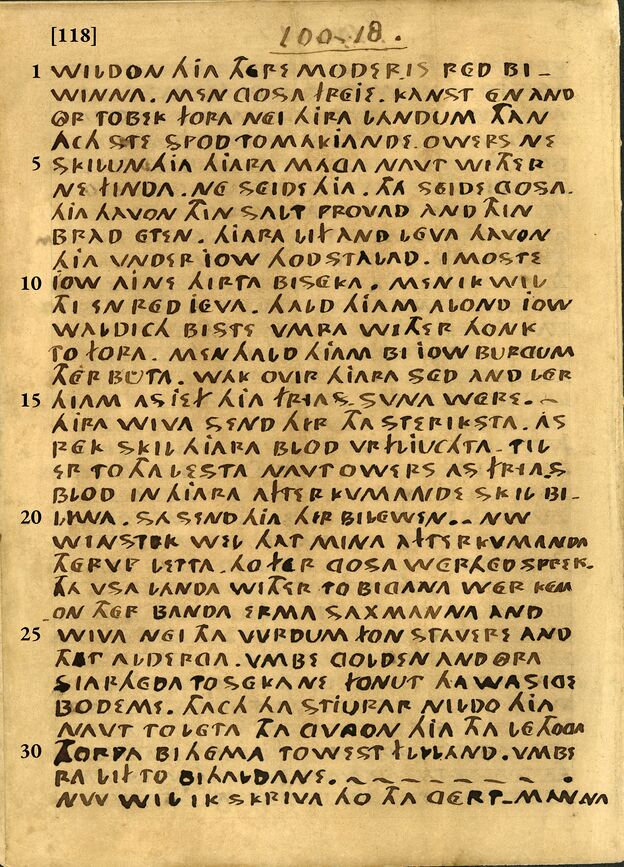 [118] 100.18.
1 WILDON HIA THÉRE MODER.IS RÉD BI-
WINNA. MEN GOSA FRÉIE. KANST ÉN AND
ÔR TOBEK FORA NÉI HIRA LANDUM THAN
ACH STE SPOD TO MAKIANDE. OWERS NE
5 SKILUN HIA HIARA MÁGA NAVT WITHER
NE FINDA. NÉ SÉIDE HIA. THA SÉIDE GOSA.
HIA HAVON THIN SALT PROVAD AND THIN
BRAD ÉTEN. HIARA LIF AND LÉVA HAVON
HIA VNDER IOW HOD STALAD. I MOSTE
10 IOW AINE HIRTA BISÉKA. MEN IK WIL
THI EN RÉD IEVA. HALD HIAM ALOND IOW
WALDICH BISTE VMRA WITHER HONK
TO FORA. MEN HALD HIAM BI IOW BURGUM
THÉR BUTA. WAK OVIR HIARA SÉD AND LÉR
15 HIAM AS IEF HIA FRIAS SVNA WÉRE.
HIRA WIVA SEND HIR THA STERIKSTA. AS
RÉK SKIL HIARA BLOD VRFLIUCHTA. TIL
ER TO THA LESTA NAVT OWERS AS FRIAS
BLOD IN HIARA AFTERKVMANDE SKIL BI-
20 LIWA. SA SEND HIA HIR BILEWEN. NW
WINSTEK WEL THAT MINA AFTERKVMANDA
THÉRVP LETTA. HO FÉR GOSA WÉRHÉD SPREK.
THA VSA LANDA WITHER TO BIGANA WÉR KÉM
ON THÉR BANDA ERMA SAXMANNA AND
25 WIVA NÉI THA VVRDUM FON STAVERE AND
THAT ALDERGA. VMBE GOLDEN AND ÔRA
SIARHÉDA TO SÉKANE FONUT THA WASIGE
BODEME. THACH THA STIURAR NILDO HIA
NAVT TO LÉTA THA GVNGON HIA THA LÉTHOGA
30 THORPA BIHÉMA TO WEST FLILAND. VMBE
RA LIF TO BIHALDANE.
NW WIL IK SKRIVA HO THA GÉRT-MANNA